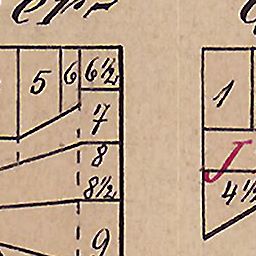 5 6 6½
7
8
8½
9
1
J
4½